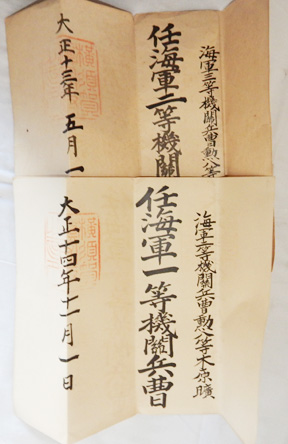 海軍三等機關兵曹勲八等
任海軍二等機關
大正十三年五月一
海軍二等機關兵曹勲八等木原曠
任海軍一等機關兵曹
大正十四年十一月一日